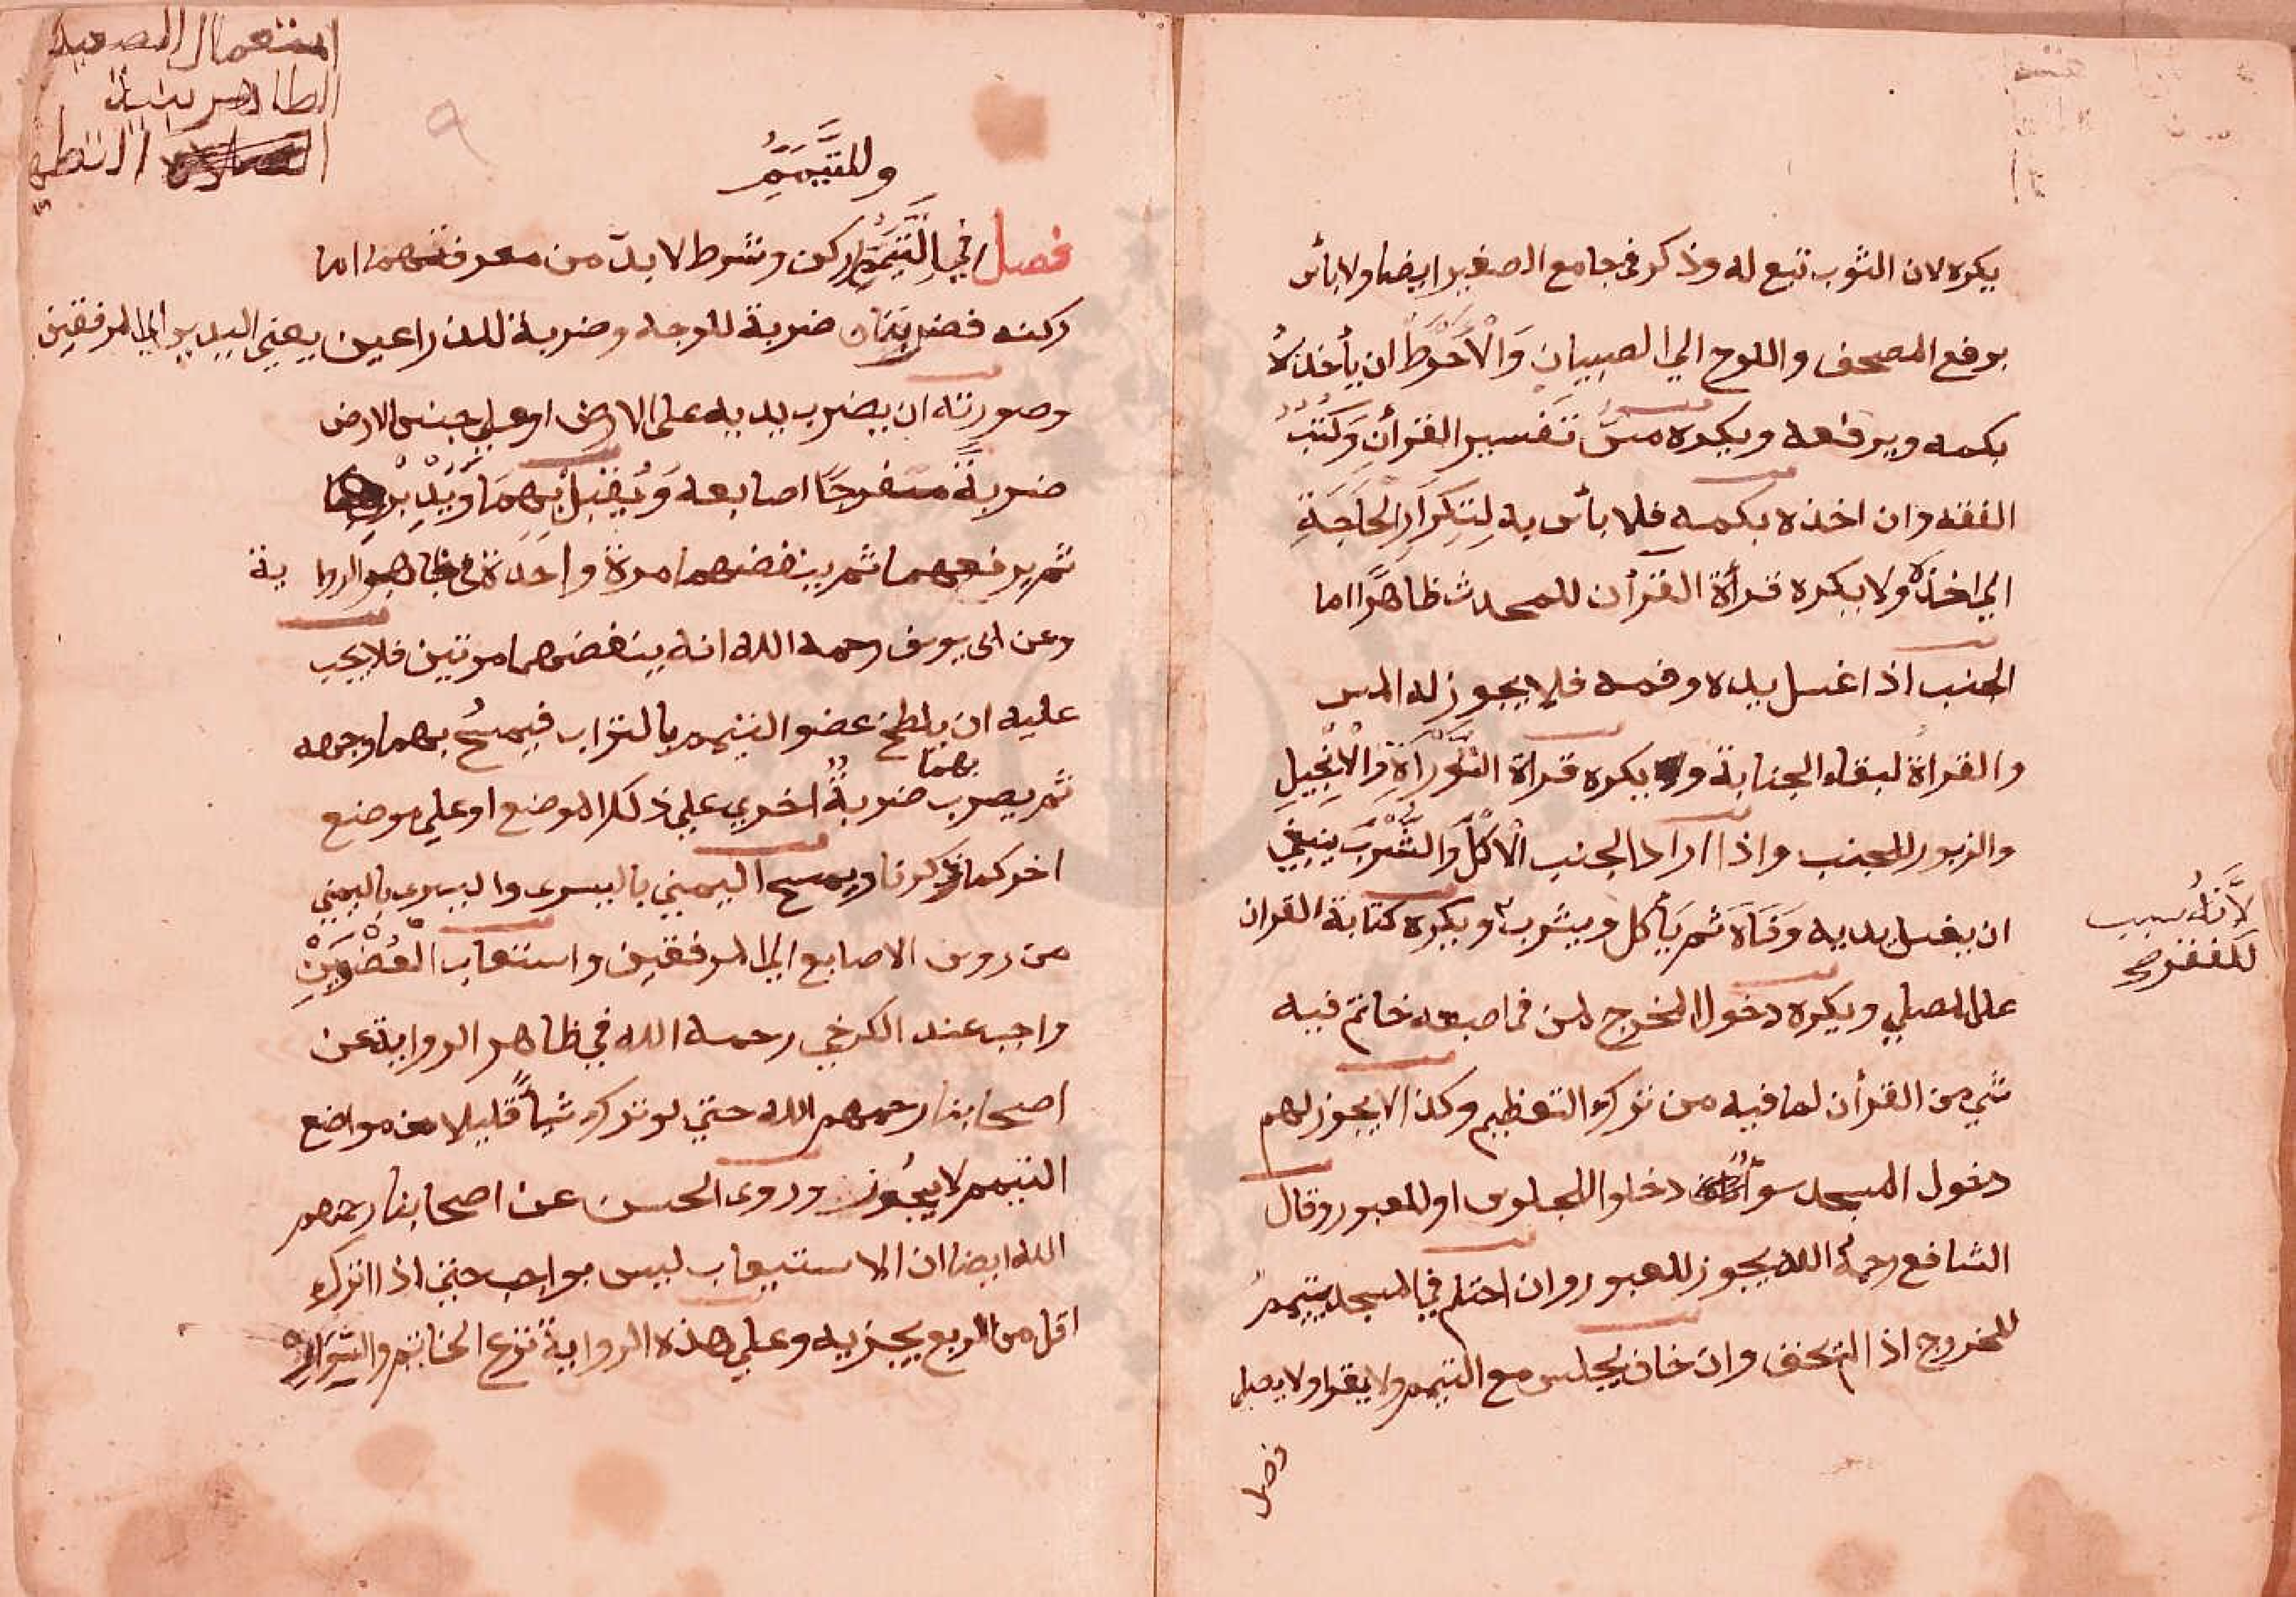 يكره لان الثوب تبع له وذكر في جامع الصغير ايضا ولا بأس
بدفع المصحف واللوح الي الصبيان وَالْاَحْوَطُ ان يأخذ
بكمه ويرفعه ويكره مس تَفْسير القرأنِ وَكُتُبِ
الفقه وان اخذه بكمه فلا بأس به لِتِكْرَارِ الحَاجَةِ
الي اخذه ولا يكره قرأة القرآن للمحدث ظاهرًا اما
الجنب اذا غسل يده وفمه فلا يجوز له المس
والقراة لبقاء الجنابة و يكره قراة التَّوْرَاةِ وَالْاِنْجِيلِ
والزبور للجنب واذا اراد الجنب الْاَكْلَ وَالشُّرْبَ ينبغي
ان يغسل يديه وَفَاهُ ثم يَأكل ويشرب ويكره كتابة القران
لاَنَّهُ سبب
للفقر صح
علي المصلي ويكره دخول المخرج لمن في اصبعه خاتم فيه
شي من القرأن لما فيه من ترك التعظيم وكذا لا يجوز لهم
دخول المسجد سوأ دخلوا للجلوس او للعبور وقال
الشافع رحمهُ الله يجوز للعبور وان احتلم في المسجد يتيممُ
للخروج اذا لم يخف وان خاف يجلس مع التيمم ولا يقرا ولا يصلي
فصل
استعمال الصعيد
الطاهر بنية
التطهير
٩
وللتَّيَمُّمِ
فصل في التَّيَمُّمِ ركن وشرط لا بد من معرفتهما اما
ركنه فضربتان ضربة للوجه وضربة للذراعين يعني اليدين الي المرفقين
وصورته ان يضرب يديه علي الارض او علي جنس الارض
ضربةً منفرجًا اصابعه وَيُقْبِلُ بِهِمَا وَيُدْبِرُ بهما
ثم يرفعهما ثم ينفضهما مرة واحدة في ظاهر الرواية
وعن ابي يوسف رحمه الله انه ينفضهما مرتين فلا يجب
عليه ان يلطخ عضو التيمم بالتراب فيمسحُ بهما وجهه
ثم يضرب بهما ضربةً اخري علي ذلك الموضع او علي موضع
اخر كما ذكرنا ويمسح اليميني باليسرى واليسرى باليميني
من روس الاصابع الي المرفقين واستعاب الْعُضْوَيْنِ
واجب عند الكرخي رحمه الله في ظاهر الرواية عن
اصحابنا رحمهم الله حتي لو ترك شيأً قليلا من مواضع
التيمم لا يجُوز وروى الحسن عن اصحابنا رحمهم
الله ايضا ان الاستيعاب ليس بواجب حتي اذا اترك
اقل من الربع يجزيه وعلي هذه الرواية نزع الخاتم والسِّوَارِ